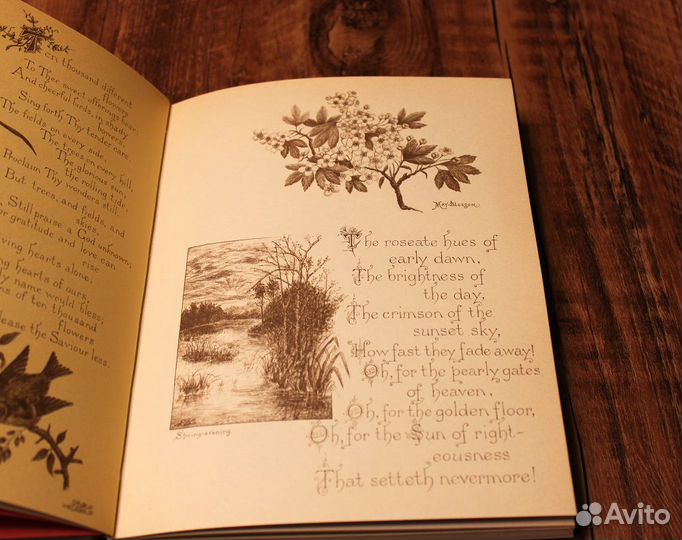 en thousand different
flowers
To Thee sweet offerings bear,
And cheerful birds, in shady
bowers,
Sing forth Thy tender care.
The fields on every side,
The trees on every hill,
The glorious sun,
the rolling tide,
Proclaim Thy wonders still.
But trees, and fields, and
skies,
Still praise a God unknown;
or gratitude and love can
rise
ving hearts alone.
ng hearts of ours;
y name would bless;
ns of ten thousand
flowers
lease the Saviour less.
May-Blossom.
The roseate hues of
early dawn,
The brightness of
the day,
The crimson of the
sunset sky,
How fast they fade away!
Oh, for the pearly gates
of heaven,
Oh, for the golden floor,
Oh, for the Sun of right-
eousness
That setteth nevermore!
Spring-evening
Avito